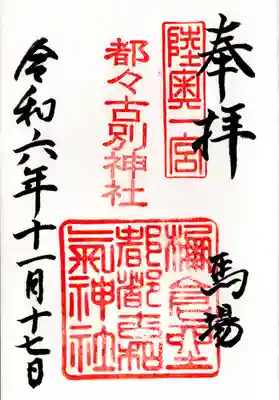 奉拝
陸奥一宮
馬場
都々古別神社
棚倉坐
都都古和
氣神社
令和六年十一月十七日